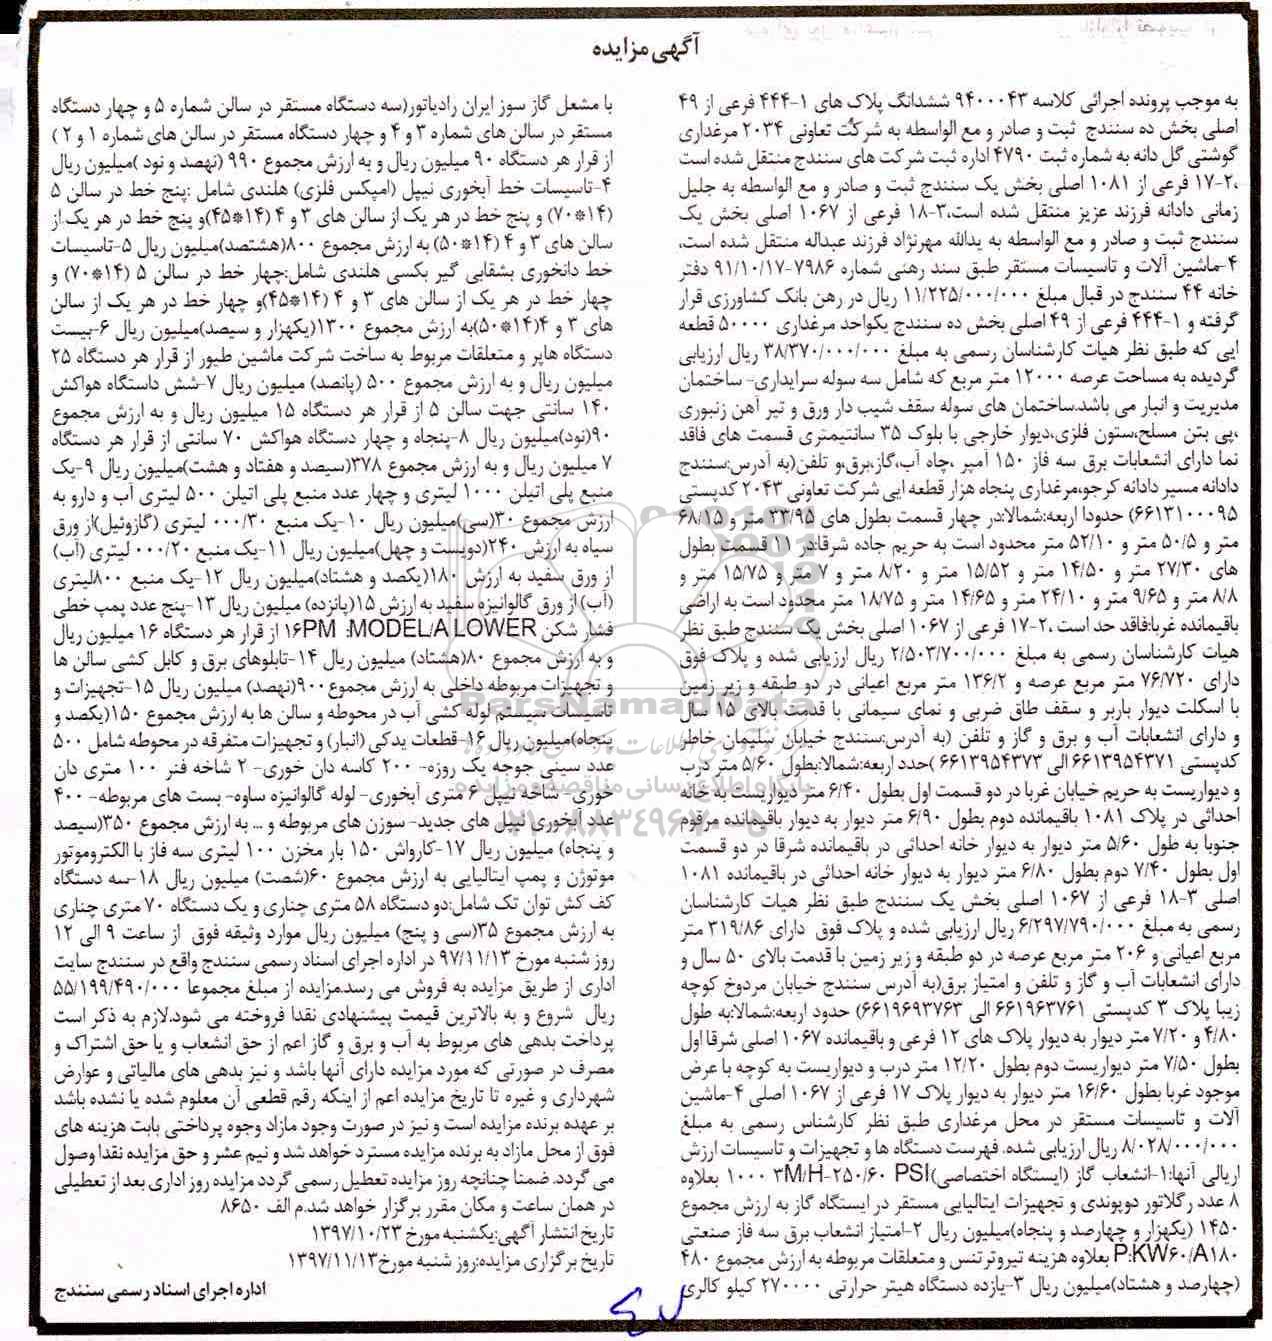 آگهی مزایده
به موجب پرونده اجرائی کلاسه ۹۴۰۰۰۴۳ ششدانگ پلاک های ۱-۴۴۴ فرعی از ۴۹
اصلی بخش ده سنندج ثبت و صادر و مع الواسطه به شرکت تعاونی ۲۰۳۴ مرغداری
گوشتی گل دانه به شماره ثبت ۴۷۹۰ اداره ثبت شرکت های سنندج منتقل شده است
،۲-۱۷ فرعی از ۱۰۸۱ اصلی بخش یک سنندج ثبت و صادر و مع الواسطه به جلیل
زمانی دادانه فرزند عزیز منتقل شده است،۳-۱۸ فرعی از ۱۰۶۷ اصلی بخش یک
سنندج ثبت و صادر و مع الواسطه به یدالله مهرنژاد فرزند عبداله منتقل شده است،
۴-ماشین آلات و تاسیسات مستقر طبق سند رهنی شماره ۷۹۸۶-۹۱/۱۰/۱۷ دفتر
خانه ۴۴ سنندج در قبال مبلغ ۱۱/۲۲۵/۰۰۰/۰۰۰ ریال در رهن بانک کشاورزی قرار
گرفته و ۱-۴۴۴ فرعی از ۴۹ اصلی بخش ده سنندج یکواحد مرغداری ۵۰۰۰۰ قطعه
ایی که طبق نظر هیات کارشناسان رسمی به مبلغ ۳۸/۳۷۰/۰۰۰/۰۰۰ ریال ارزیابی
گردیده به مساحت عرصه ۱۲۰۰۰ متر مربع که شامل سه سوله سرایداری- ساختمان
مدیریت و انبار می باشد.ساختمان های سوله سقف شیب دار ورق و تیر آهن زنبوری
،پی بتن مسلح،ستون فلزی،دیوار خارجی با بلوک ۳۵ سانتیمتری قسمت های فاقد
نما دارای انشعابات برق سه فاز ۱۵۰ آمپر ،چاه آب،گاز،برق،و تلفن(به آدرس:سنندج
دادانه مسیر دادانه کرجو،مرغداری پنجاه هزار قطعه ایی شرکت تعاونی ۲۰۴۳ کدپستی
۶۶۱۳۱۰۰۰۹۵) حدودا اربعه:شمالا:در چهار قسمت بطول های ۳۳/۹۵ متر و ۶۸/۱۵
متر و ۵۰/۵ متر و ۵۲/۱۰ متر محدود است به حریم جاده شرقا:در ۱۱ قسمت بطول
های ۲۷/۳۰ متر و ۱۴/۵۰ متر و ۱۵/۵۲ متر و ۸/۲۰ متر و ۷ متر و ۱۵/۷۵ متر و
۸/۸ متر و ۹/۶۵ متر و ۲۴/۱۰ متر و ۱۴/۶۵ متر و ۱۸/۷۵ متر محدود است به اراضی
باقیمانده غربا:فاقد حد است ،۲-۱۷ فرعی از ۱۰۶۷ اصلی بخش یک سنندج طبق نظر
هیات کارشناسان رسمی به مبلغ ۲/۵۰۳/۷۰۰/۰۰۰ ریال ارزیابی شده و پلاک فوق
دارای ۷۶/۷۲۰ متر مربع عرصه و ۱۳۶/۲ متر مربع اعیانی در دو طبقه و زیر زمین
با اسکلت دیوار باربر و سقف طاق ضربی و نمای سیمانی با قدمت بالای ۱۵ سال
و دارای انشعابات آب و برق و گاز و تلفن (به آدرس:سنندج خیابان سلیمان خاطر
کدپستی ۶۶۱۳۹۵۴۳۷۱ الی ۶۶۱۳۹۵۴۳۷۳ )حدد اربعه:شمالا:بطول ۵/۶۰ متر درب
و دیواریست به حریم خیابان غربا در دو قسمت اول بطول ۶/۴۰ متر دیواریست به خانه
احداثی در پلاک ۱۰۸۱ باقیمانده دوم بطول ۶/۹۰ متر دیوار به دیوار باقیمانده مرقوم
جنوبا به طول ۵/۶۰ متر دیوار به دیوار خانه احداثی در باقیمانده شرقا در دو قسمت
اول بطول ۷/۴۰ دوم بطول ۶/۸۰ متر دیوار به دیوار خانه احداثی در باقیمانده ۱۰۸۱
اصلی ۳-۱۸ فرعی از ۱۰۶۷ اصلی بخش یک سنندج طبق نظر هیات کارشناسان
رسمی به مبلغ ۶/۲۹۷/۷۹۰/۰۰۰ ریال ارزیابی شده و پلاک فوق دارای ۳۱۹/۸۶ متر
مربع اعیانی و ۲۰۶ متر مربع عرصه در دو طبقه و زیر زمین با قدمت بالای ۵۰ سال و
دارای انشعابات آب و گاز و تلفن و امتیاز برق(به آدرس سنندج خیابان مردوخ کوچه
زیبا پلاک ۳ کدپستی ۶۶۱۹۶۳۷۶۱ الی ۶۶۱۹۶۹۳۷۶۳) حدود اربعه:شمالا:به طول
۴/۸۰ و ۷/۲۰ متر دیوار به دیوار پلاک های ۱۲ فرعی و باقیمانده ۱۰۶۷ اصلی شرقا اول
بطول ۷/۵۰ متر دیواریست دوم بطول ۱۲/۲۰ متر درب و دیواریست به کوچه با عرض
موجود غربا بطول ۱۶/۶۰ متر دیوار به دیوار پلاک ۱۷ فرعی از ۱۰۶۷ اصلی ۴-ماشین
آلات و تاسیسات مستقر در محل مرغداری طبق نظر کارشناس رسمی به مبلغ
۸/۰۲۸/۰۰۰/۰۰۰ ریال ارزیابی شده. فهرست دستگاه ها و تجهیزات و تاسیسات ارزش
اریالی آنها:۱-انشعاب گاز (ایستگاه اختصاصی)۱۰۰۰ ۳M/H-۲۵۰/۶۰ PSI بعلاوه
۸ عدد رگلاتور دوپوندی و تجهیزات ایتالیایی مستقر در ایستگاه گاز به ارزش مجموع
۱۴۵۰ (یکهزار و چهارصد و پنجاه)میلیون ریال ۲-امتیاز انشعاب برق سه فاز صنعتی
P:KW۶۰/A۱۸۰ بعلاوه هزینه تیروترتنس و متعلقات مربوطه به ارزش مجموع ۴۸۰
(چهارصد و هشتاد)میلیون ریال ۳-یازده دستگاه هیتر حرارتی ۲۷۰۰۰۰ کیلو کالری
با مشعل گاز سوز ایران رادیاتور(سه دستگاه مستقر در سالن شماره ۵ و چهار دستگاه
مستقر در سالن های شماره ۳ و ۴ و چهار دستگاه مستقر در سالن های شماره ۱ و ۲ )
از قرار هر دستگاه ۹۰ میلیون ریال و به ارزش مجموع ۹۹۰ (نهصد و نود )میلیون ریال
۴-تاسیسات خط آبخوری نیپل (امپکس فلزی) هلندی شامل :پنج خط در سالن ۵
(۱۴*۷۰) و پنج خط در هر یک از سالن های ۳ و ۴ (۱۴*۴۵)و پنج خط در هر یک از
سالن های ۳ و ۴ (۱۴*۵۰) به ارزش مجموع ۸۰۰(هشتصد)میلیون ریال ۵-تاسیسات
خط دانخوری بشقابی گیر بکسی هلندی شامل:چهار خط در سالن ۵ (۱۴*۷۰) و
چهار خط در هر یک از سالن های ۳ و ۴ (۱۴*۴۵)و چهار خط در هر یک از سالن
های ۳ و ۴(۱۴*۵۰)به ارزش مجموع ۱۳۰۰(یکهزار و سیصد)میلیون ریال ۶-بیست
دستگاه هاپر و متعلقات مربوط به ساخت شرکت ماشین طیور از قرار هر دستگاه ۲۵
میلیون ریال و به ارزش مجموع ۵۰۰ (پانصد) میلیون ریال ۷-شش داستگاه هواکش
۱۴۰ سانتی جهت سالن ۵ از قرار هر دستگاه ۱۵ میلیون ریال و به ارزش مجموع
۹۰(نود)میلیون ریال ۸-پنجاه و چهار دستگاه هواکش ۷۰ سانتی از قرار هر دستگاه
۷ میلیون ریال و به ارزش مجموع ۳۷۸(سیصد و هفتاد و هشت)میلیون ریال ۹-یک
منبع پلی اتیلن ۱۰۰۰ لیتری و چهار عدد منبع پلی اتیلن ۵۰۰ لیتری آب و دارو به
ارزش مجموع ۳۰(سی)میلیون ریال ۱۰-یک منبع ۰۰۰/۳۰ لیتری (گازوئیل)از ورق
سیاه به ارزش ۲۴۰(دویست و چهل)میلیون ریال ۱۱-یک منبع ۰۰۰/۲۰ لیتری (آب)
از ورق سفید به ارزش ۱۸۰(یکصد و هشتاد)میلیون ریال ۱۲-یک منبع ۸۰۰لیتری
(آب) از ورق گالوانیزه سفید به ارزش ۱۵(پانزده) میلیون ریال ۱۳-پنج عدد پمپ خطی
فشار شکن ۱۶PM :MODEL/A LOWER از قرار هر دستگاه ۱۶ میلیون ریال
و به ارزش مجموع ۸۰(هشتاد) میلیون ریال ۱۴-تابلوهای برق و کابل کشی سالن ها
و تجهیزات مربوطه داخلی به ارزش مجموع ۹۰۰(نهصد) میلیون ریال ۱۵-تجهیزات و
تاسیسات سیستم لوله کشی آب در محوطه و سالن ها به ارزش مجموع ۱۵۰(یکصد و
پنجاه)میلیون ریال ۱۶-قطعات یدکی (انبار) و تجهیزات متفرقه در محوطه شامل ۵۰۰
عدد سینی جوجه یک روزه- ۲۰۰ کاسه دان خوری- ۲ شاخه فنر ۱۰۰ متری دان
خوری- شاخه نیپل ۶ متری آبخوری- لوله گالوانیزه ساوه- بست های مربوطه- ۴۰۰
عدد آبخوری نیپل های جدید- سوزن های مربوطه و ... به ارزش مجموع ۳۵۰(سیصد
و پنجاه) میلیون ریال ۱۷-کارواش ۱۵۰ بار مخزن ۱۰۰ لیتری سه فاز با الکتروموتور
موتوژن و پمپ ایتالیایی به ارزش مجموع ۶۰(شصت) میلیون ریال ۱۸-سه دستگاه
کف کش توان تک شامل:دو دستگاه ۵۸ متری چناری و یک دستگاه ۷۰ متری چناری
به ارزش مجموع ۳۵(سی و پنج) میلیون ریال موارد وثیقه فوق از ساعت ۹ الی ۱۲
روز شنبه مورخ ۹۷/۱۱/۱۳ در اداره اجرای اسناد رسمی سنندج واقع در سنندج سایت
اداری از طریق مزایده به فروش می رسد.مزایده از مبلغ مجموعا ۵۵/۱۹۹/۴۹۰/۰۰۰
ریال شروع و به بالاترین قیمت پیشنهادی نقدا فروخته می شود.لازم به ذکر است
پرداخت بدهی های مربوط به آب و برق و گاز اعم از حق انشعاب و یا حق اشتراک و
مصرف در صورتی که مورد مزایده دارای آنها باشد و نیز بدهی های مالیاتی و عوارض
شهرداری و غیره تا تاریخ مزایده اعم از اینکه رقم قطعی آن معلوم شده یا نشده باشد
بر عهده برنده مزایده است و نیز در صورت وجود مازاد وجوه پرداختی بابت هزینه های
فوق از محل مازاد به برنده مزایده مسترد خواهد شد و نیم عشر و حق مزایده نقدا وصول
می گردد. ضمنا چنانچه روز مزایده تعطیل رسمی گردد مزایده روز اداری بعد از تعطیلی
در همان ساعت و مکان مقرر برگزار خواهد شد.م الف ۸۶۵۰
تاریخ انتشار آگهی:یکشنبه مورخ ۱۳۹۷/۱۰/۲۳
تاریخ برگزاری مزایده:روز شنبه مورخ۱۳۹۷/۱۱/۱۳
اداره اجرای اسناد رسمی سنندج
ParsNamadData
پایگاه اطلاع رسانی مناقصه و مزایده
۰۲۱-۸۸۳۴۹۶۷۰-۵